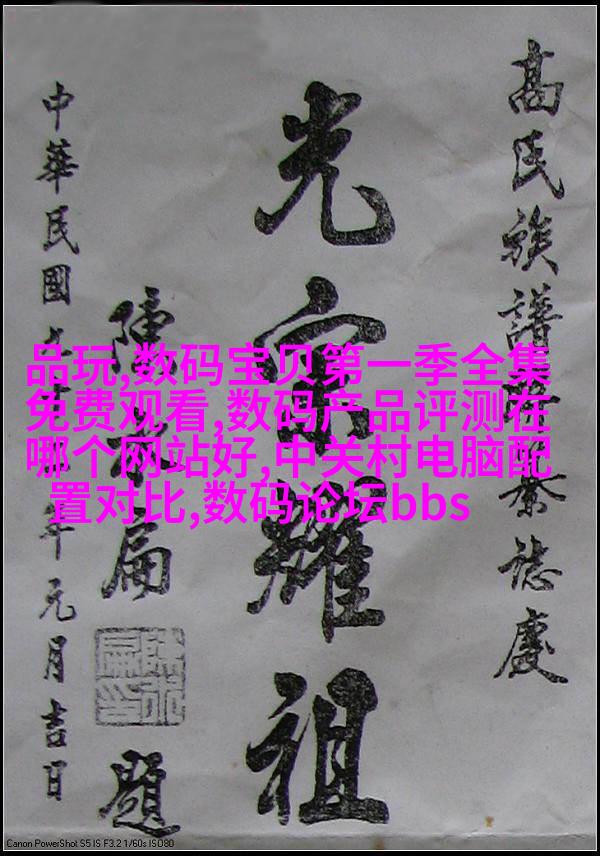 高氏族譜誌慶
光宗耀祖
陳水扁
題
中華民國年元月吉日
品玩,数码宝贝第一季全集
免费观看,数码产品评测在
哪个网站好,中关村电脑配
置对比,数码论坛bbs
Canon PowerShot S5 IS F3.2 1/60s ISO80